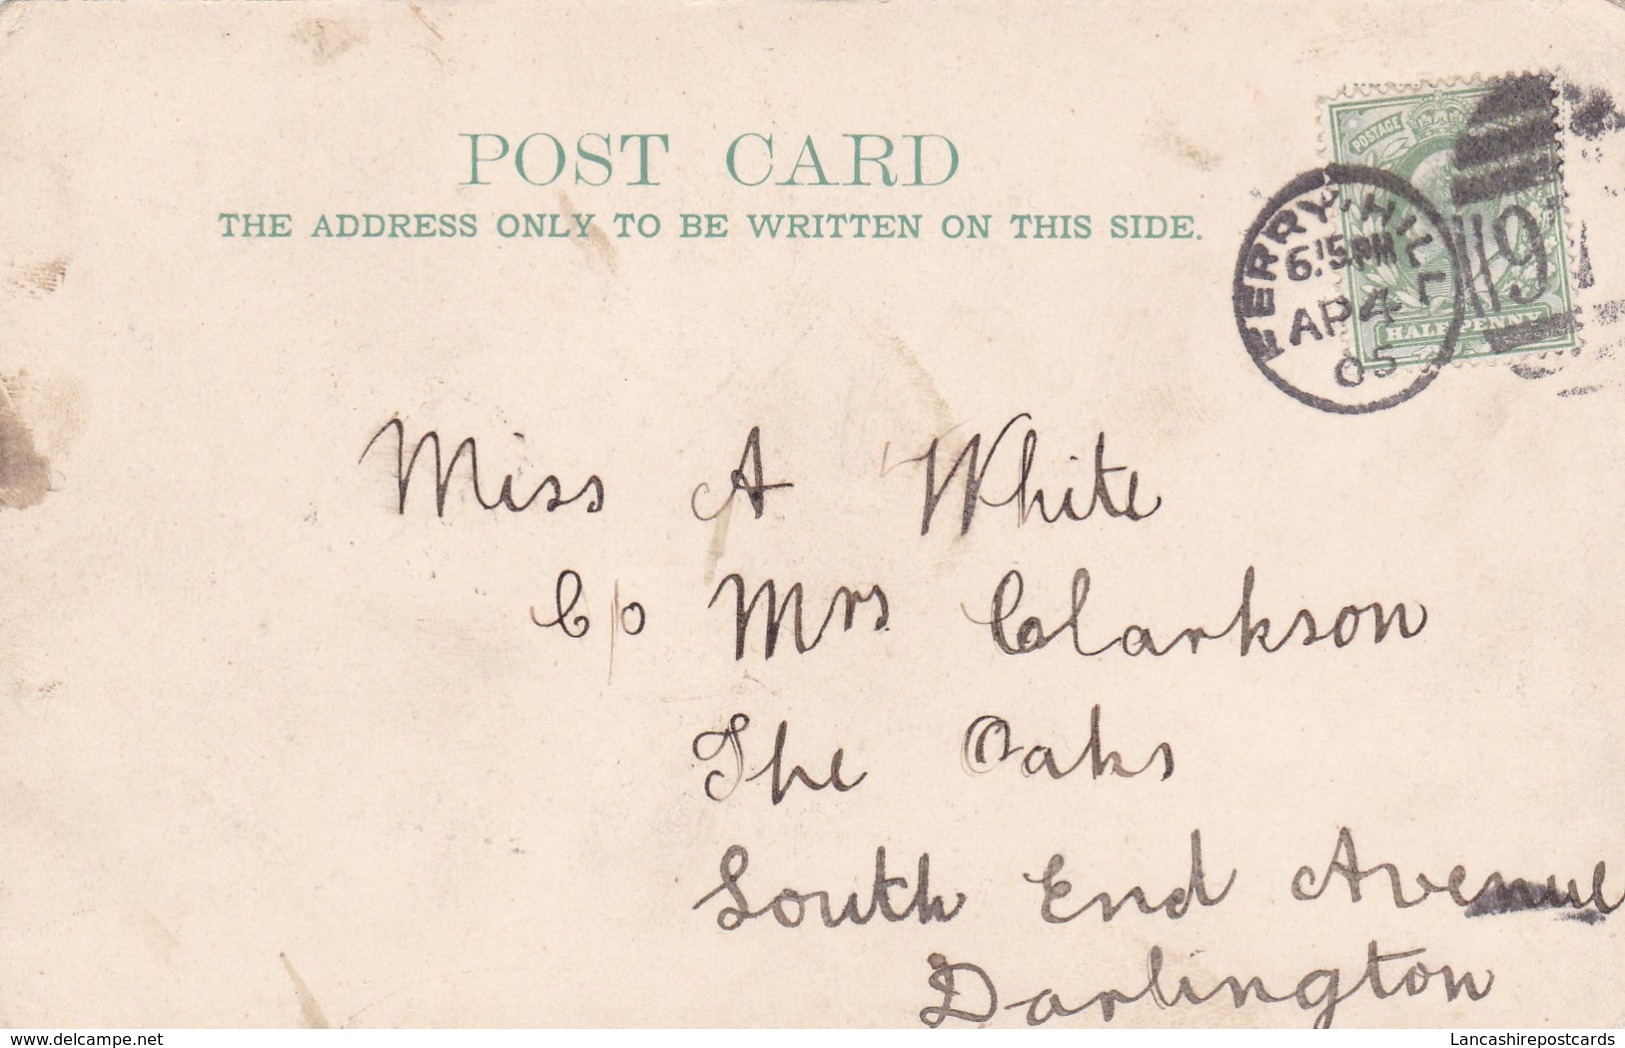 POST CARD
THE ADDRESS ONLY TO BE WRITTEN ON THIS SIDE.
POSTAGE
HALFPENNY
FERRY-HILL
6.15PM
AP 4
05
Miss A White
C/o Mrs Clarkson
The Oaks
South End Avenue
Darlington
delcampe.net
Lancashirepostcards